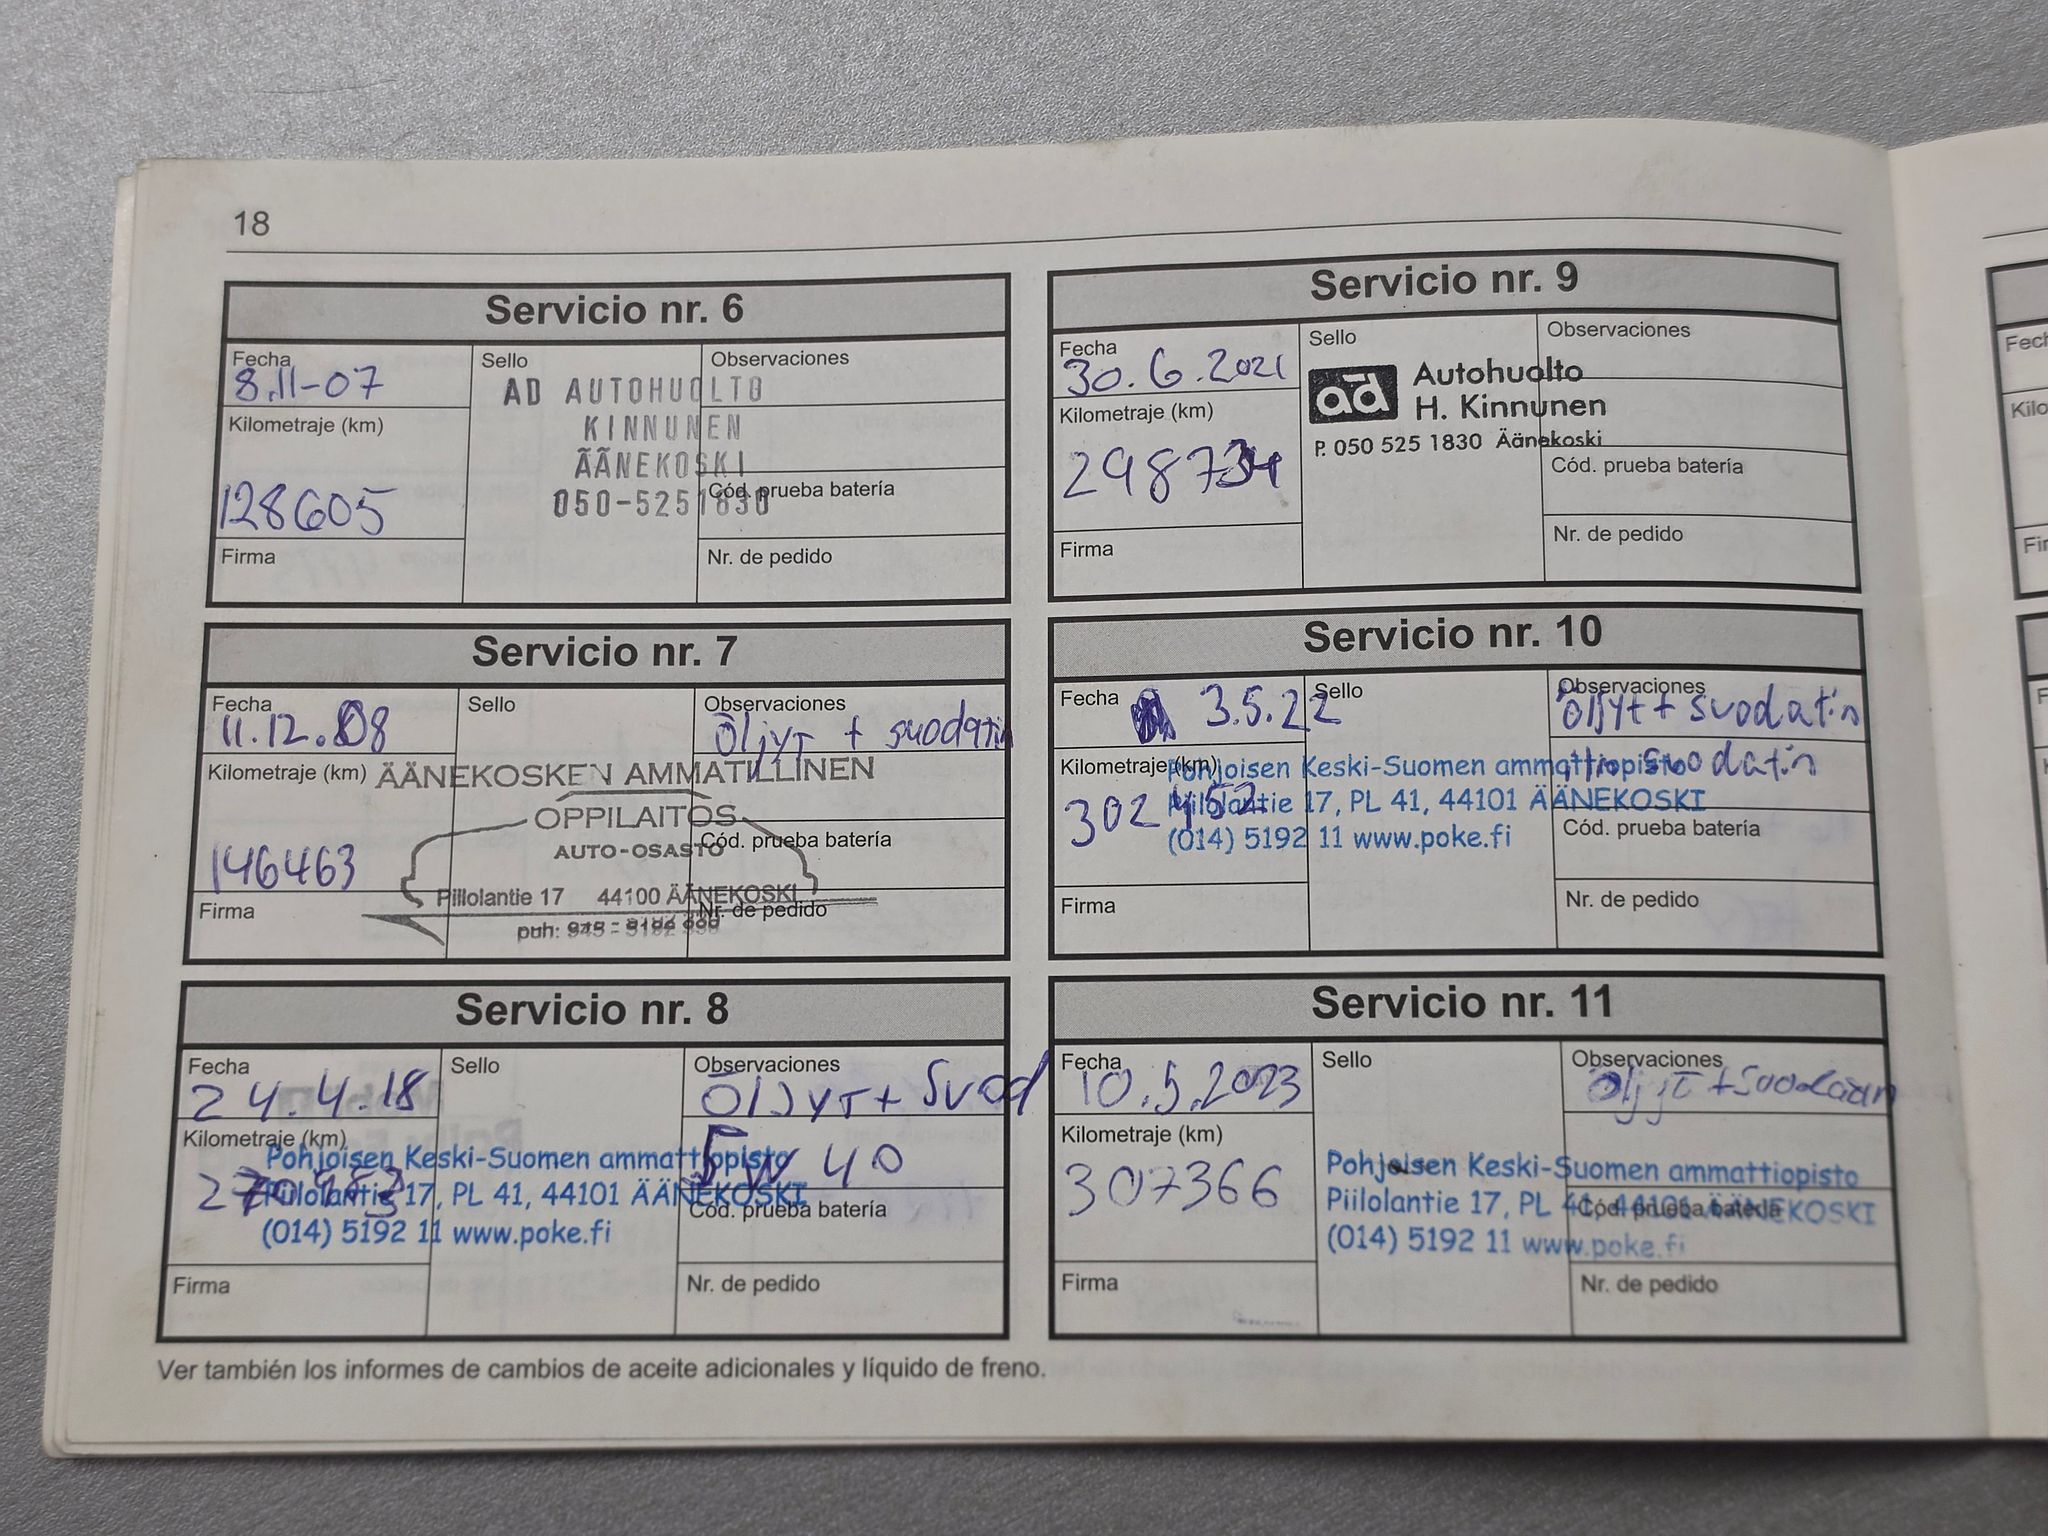 18
Servicio nr. 6
Fecha
8.11-07
Kilometraje (km)
128605
Firma
Sello
AD AUTOHUOLTO
KINNUNEN
ÄÄNEKOSKI
050-5251830
Observaciones
Cód. prueba batería
Nr. de pedido
Servicio nr. 7
Fecha
11.12.08
Kilometraje (km)
146463
Firma
Sello
ÄÄNEKOSKEN AMMATILLINEN
OPPILAITOS
AUTO-OSASTO
Piilolantie 17 44100 ÄÄNEKOSKI
puh:
Observaciones
Öljyt + suodatin
Cód. prueba batería
Nr. de pedido
Servicio nr. 8
Fecha
24.4.18
Kilometraje (km)
Firma
Sello
Pohjoisen Keski-Suomen ammattiopisto
Piilolantie 17, PL 41, 44101 ÄÄNEKOSKI
(014) 5192 11 www.poke.fi
Observaciones
Öljyt + Suod
5W 40
Cód. prueba batería
Nr. de pedido
Servicio nr. 9
Fecha
30.6.2021
Kilometraje (km)
298734
Firma
Sello
ad Autohuolto
H. Kinnunen
P. 050 525 1830 Äänekoski
Observaciones
Cód. prueba batería
Nr. de pedido
Servicio nr. 10
Fecha
3.5.22
Kilometraje (km)
302452
Firma
Sello
Pohjoisen Keski-Suomen ammattiopisto
Piilolantie 17, PL 41, 44101 ÄÄNEKOSKI
(014) 5192 11 www.poke.fi
Observaciones
Öljyt + suodatin
suodatin
Cód. prueba batería
Nr. de pedido
Servicio nr. 11
Fecha
10.5.2023
Kilometraje (km)
307366
Firma
Sello
Pohjoisen Keski-Suomen ammattiopisto
Piilolantie 17, PL 41, 44101 ÄÄNEKOSKI
(014) 5192 11 www.poke.fi
Observaciones
Öljyt +
Cód. prueba batería
Nr. de pedido
Ver también los informes de cambios de aceite adicionales y líquido de freno.